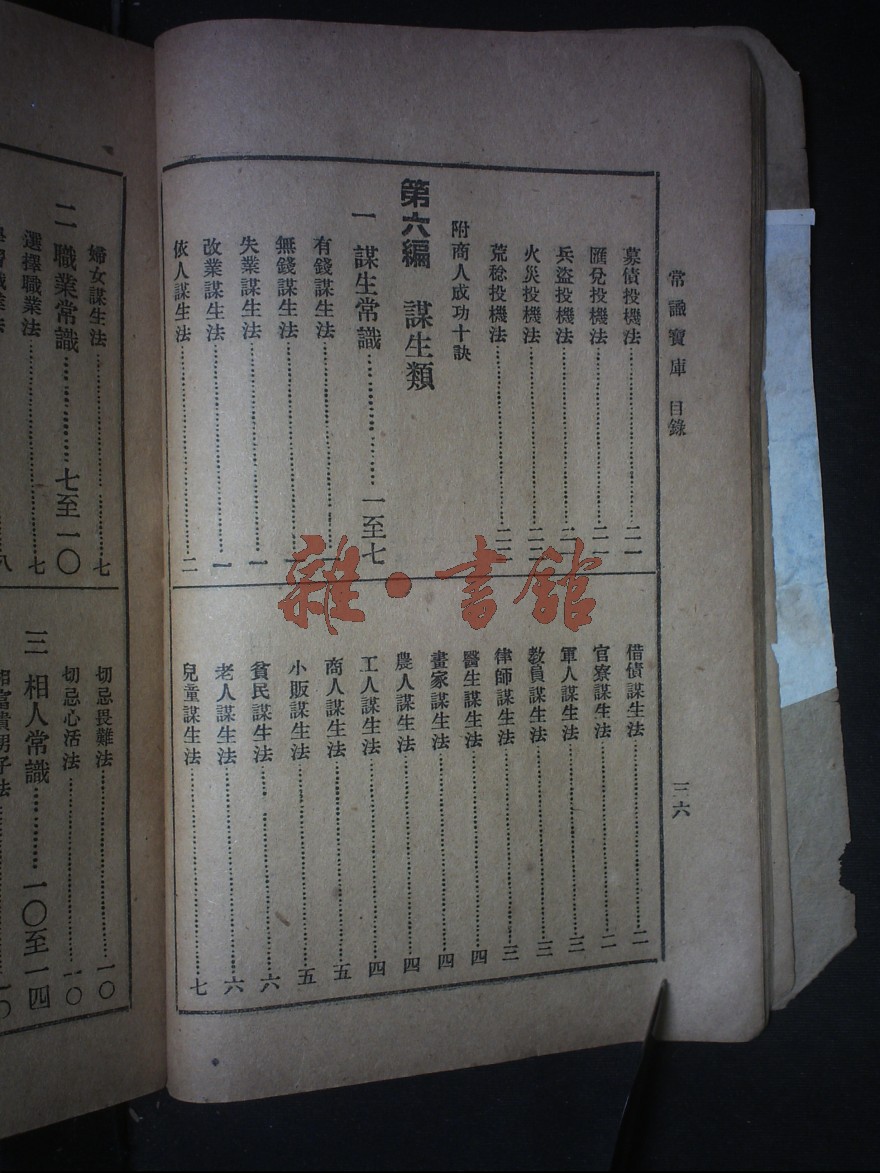 常識寶庫 目錄
三六
募債投機法 二一
匯兌投機法 二一
兵盜投機法
火災投機法
荒稔投機法
附商人成功十訣
第六編 謀生類
一 謀生常識 一至七
有錢謀生法
無錢謀生法
失業謀生法 一
改業謀生法 一
依人謀生法 二
借債謀生法 二
官寮謀生法 二
軍人謀生法 三
教員謀生法 三
律師謀生法 三
醫生謀生法 四
畫家謀生法 四
農人謀生法 四
工人謀生法 四
商人謀生法 五
小販謀生法 五
貧民謀生法 六
老人謀生法 六
兒童謀生法 七
婦女謀生法 七
二 職業常識 七至一〇
選擇職業法 七
八
切忌畏難法 一〇
切忌心活法 一〇
三 相人常識 一〇至一四
一〇
雜·書館